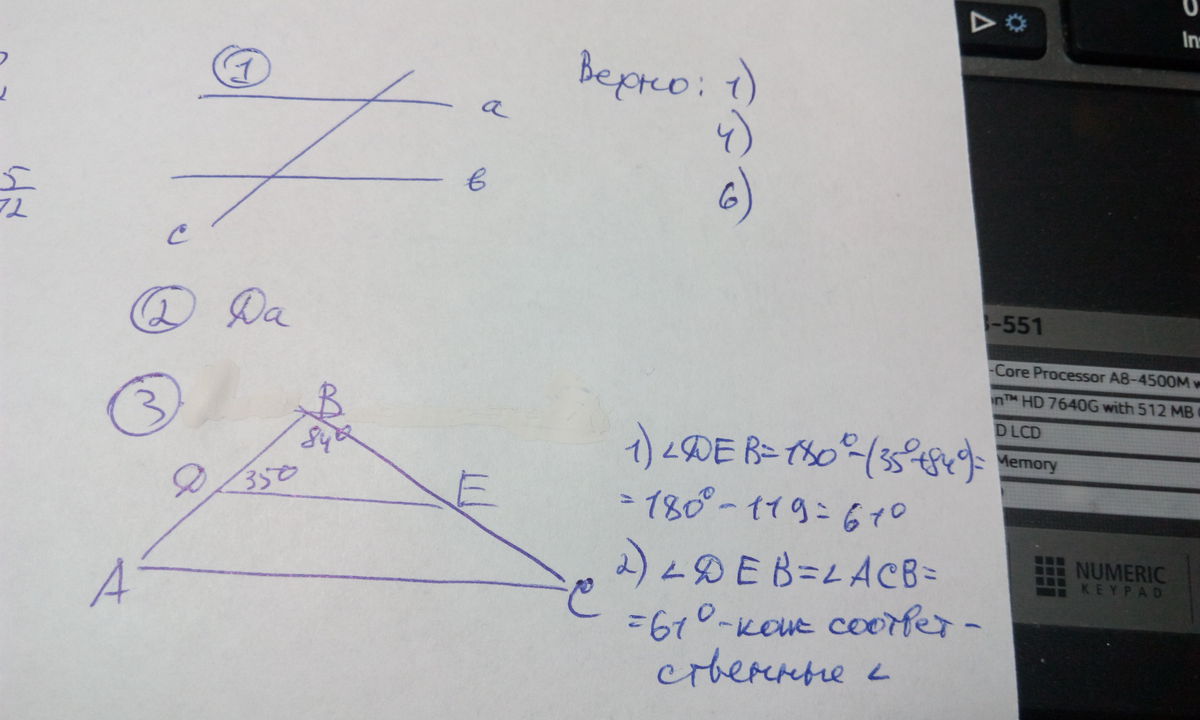 1
a
в
c
Верно: 1)
4)
6)
5
12
2 Да
3
B
84°
D
35°
E
A
C
1) ∠DEB=180°-(35°+84°)=
=180°-119=61°
2) ∠DEB=∠ACB=
=61°-как соответ-
ственные ∠
-551
-Core Processor A8-4500M w
n™ HD 7640G with 512 MB
D LCD
Memory
NUMERIC
KEYPAD
0
In